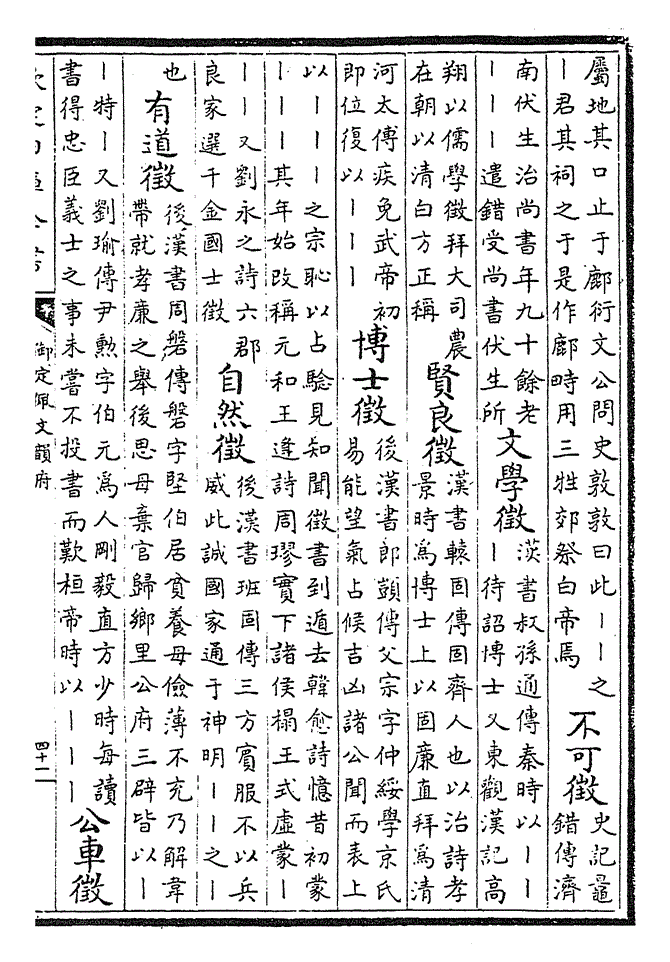 屬地其口止于鄜衍文公問史敦敦曰此――之
―君其祠之于是作鄜畤用三牲郊祭白帝焉
不可徵
史記鼂
錯傳濟
南伏生治尚書年九十餘老
―――遣錯受尚書伏生所
文學徵
漢書叔孫通傳秦時以――
―待詔博士又東觀漢記高
翔以儒學徵拜大司農
在朝以清白方正稱
賢良徵
漢書轅固傳固齊人也以治詩孝
景時爲博士上以固廉直拜爲清
河太傅疾免武帝初
即位復以―――
博士徵
後漢書郎顗傳父宗字仲綏學京氏
易能望氣占候吉凶諸公聞而表上
以―――之宗恥以占驗見知聞徵書到遁去韓愈詩憶昔初蒙
――――其年始改稱元和王逢詩周璆實下諸侯榻王式虛蒙―
――又劉永之詩六郡
良家選千金國士徵
自然徵
後漢書班固傳三方賓服不以兵
威此誠國家通于神明――之―
也
有道徵
後漢書周磐傳磐字堅伯居貧養母儉薄不充乃解韋
帶就孝廉之舉後思母棄官歸鄉里公府三辟皆以―
―特―又劉瑜傳尹勲字伯元爲人剛毅直方少時每讀
書得忠臣義士之事未嘗不投書而歎桓帝時以―――
公車徵
欽定四庫全書
御定佩文韻府
四十一